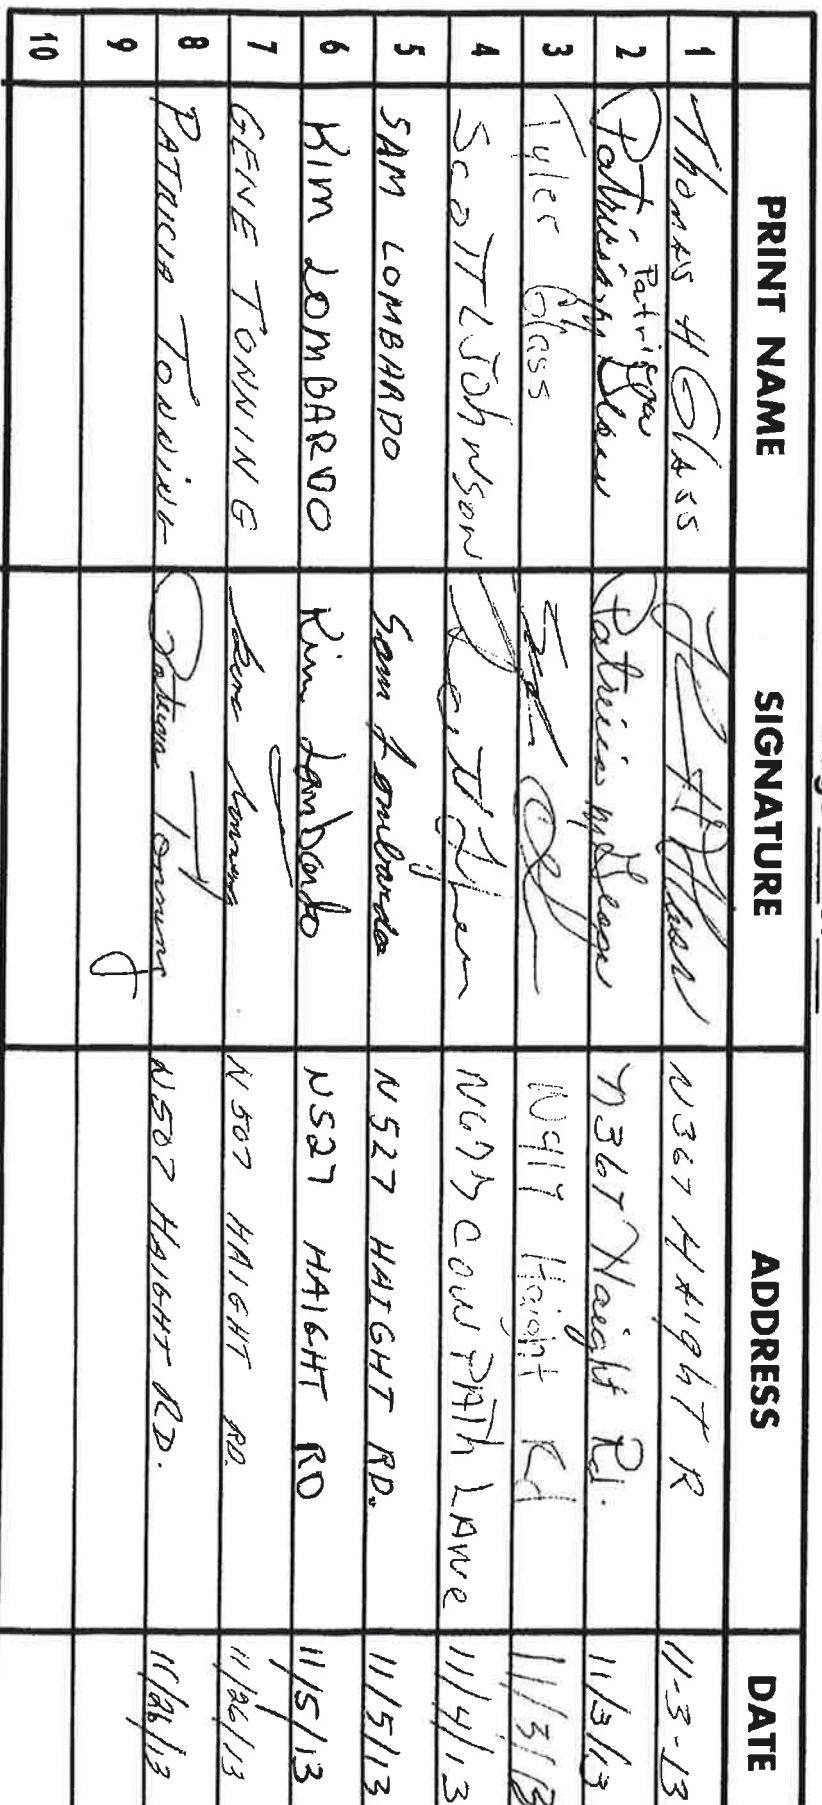 PRINT NAME SIGNATURE ADDRESS DATE
1 Thomas H Glass N367 HAighT R 11-3-13
2 Patricia Patricia M Glass n367 Haight Rd. 11/3/13
3 Tyler Glass N417 Haight Rd 11/3/13
4 ScoTT L Johnson COW PATh LANe 11/4/13
5 SAM LOMBARDO Sam Lombardo N527 HAIGHT RD. 11/5/13
6 Kim LOMBARDO Kim Lombardo N527 HAIGHT RD 11/5/13
7 GENE TONNING N507 HAIGHT RD. 11/26/13
8 PATRICIA TONNING Patricia Tonning N507 HAIGHT RD. 11/26/13
9
10